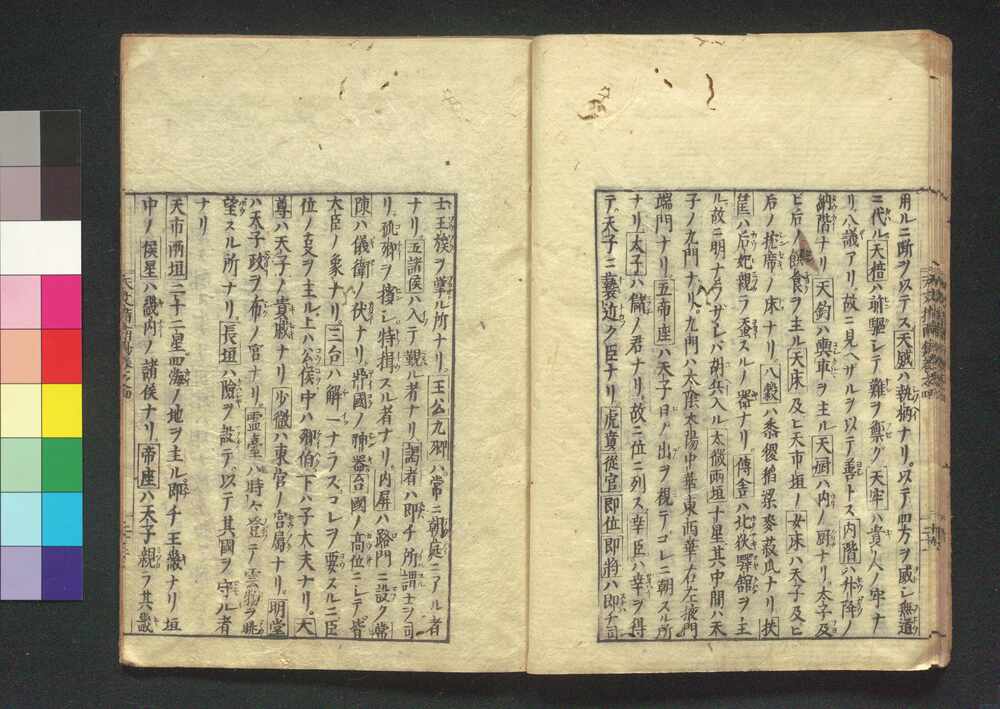 用ルニ断ヲ以テス天威ハ執柄ナリ。以テ四方ヲ威シ無道
ニ代ル天棓ハ前驅シテ難ヲ禦グ天牢ハ貴人ノ牢ナ
リ八議アリ。故ニ見ヘザルヲ以テ善トス内階ハ升降ノ
納階ナリ天鈎ハ輿車ヲ主ル天厨ハ内ノ厨ナリ。太子及
ヒ后ノ飲食ヲ主ル天床及ヒ天市垣ノ女床ハ天子及ヒ
后ノ 席ノ床ナリ。八穀ハ黍稷稻粱麥菽瓜ナリ扶
筐ハ后妃親ラ蚕スルノ器ナリ。傳舎ハ北狄驛舘ヲ主
ル故ニ明ナラザレバ胡兵入ル太微両垣十星其中間ハ天
子ノ九門ナリ。九門ハ太陰太陽中華東西華右左掖門
端門ナリ五帝座ハ天子日ノ出ヲ視テコレニ朝スル所
ナリ太子ハ儲ノ君ナリ。故ニ位ニ列ス幸臣ハ幸ヲ得
テ天子ニ褻近ク臣ナリ虎賁從官即位即將ハ即チ司
士王族ヲ掌ル所ナリ。王公九卿ハ常ニ朝庭ニアル者
ナリ。五諸侯ハ入テ觀ル者ナリ。謁者ハ即チ所謂士ヲ司
リ。孤卿ヲ擯シ特揖スル者ナリ。内屏ハ路門ニ設ク常
陳ハ儀衛ノ伏ナリ。鼎國ノ陳器台國ノ高位ニシテ皆
大臣ノ象ナリ三台ハ解一ナラスコレヲ要スルニ臣
位ノ支ヲ主ル上ハ公侯中ハ卿伯下ハ子大夫ナリ。大
尊ハ天子ノ貴戚ナリ。少微ハ東宮ノ宮屬ナリ。明堂
ハ天子政ヲ布ノ官ナリ。霊臺ハ時々登テノ雲物ヲ眺
望スル所ナリ。長垣ハ險ヲ設テ以テ其國ヲ守ル者
ナリ
天市両垣二十二星四海ノ地ヲ主ル即チ王畿ナリ垣
中ノ侯星ハ畿内ノ諸侯ナリ帝座ハ天子親ヲ其畿